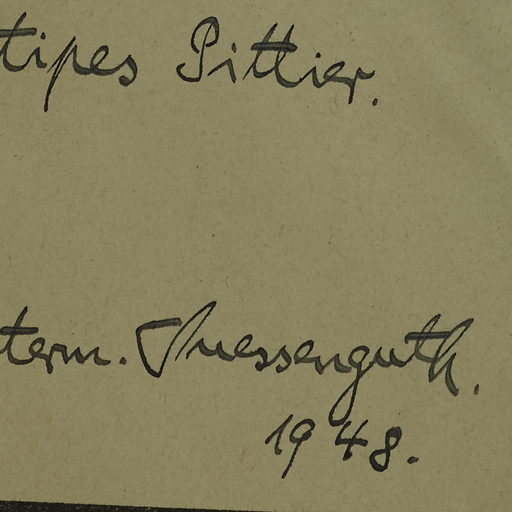 tipes Pittier.
term. Suessenguth.
1948.